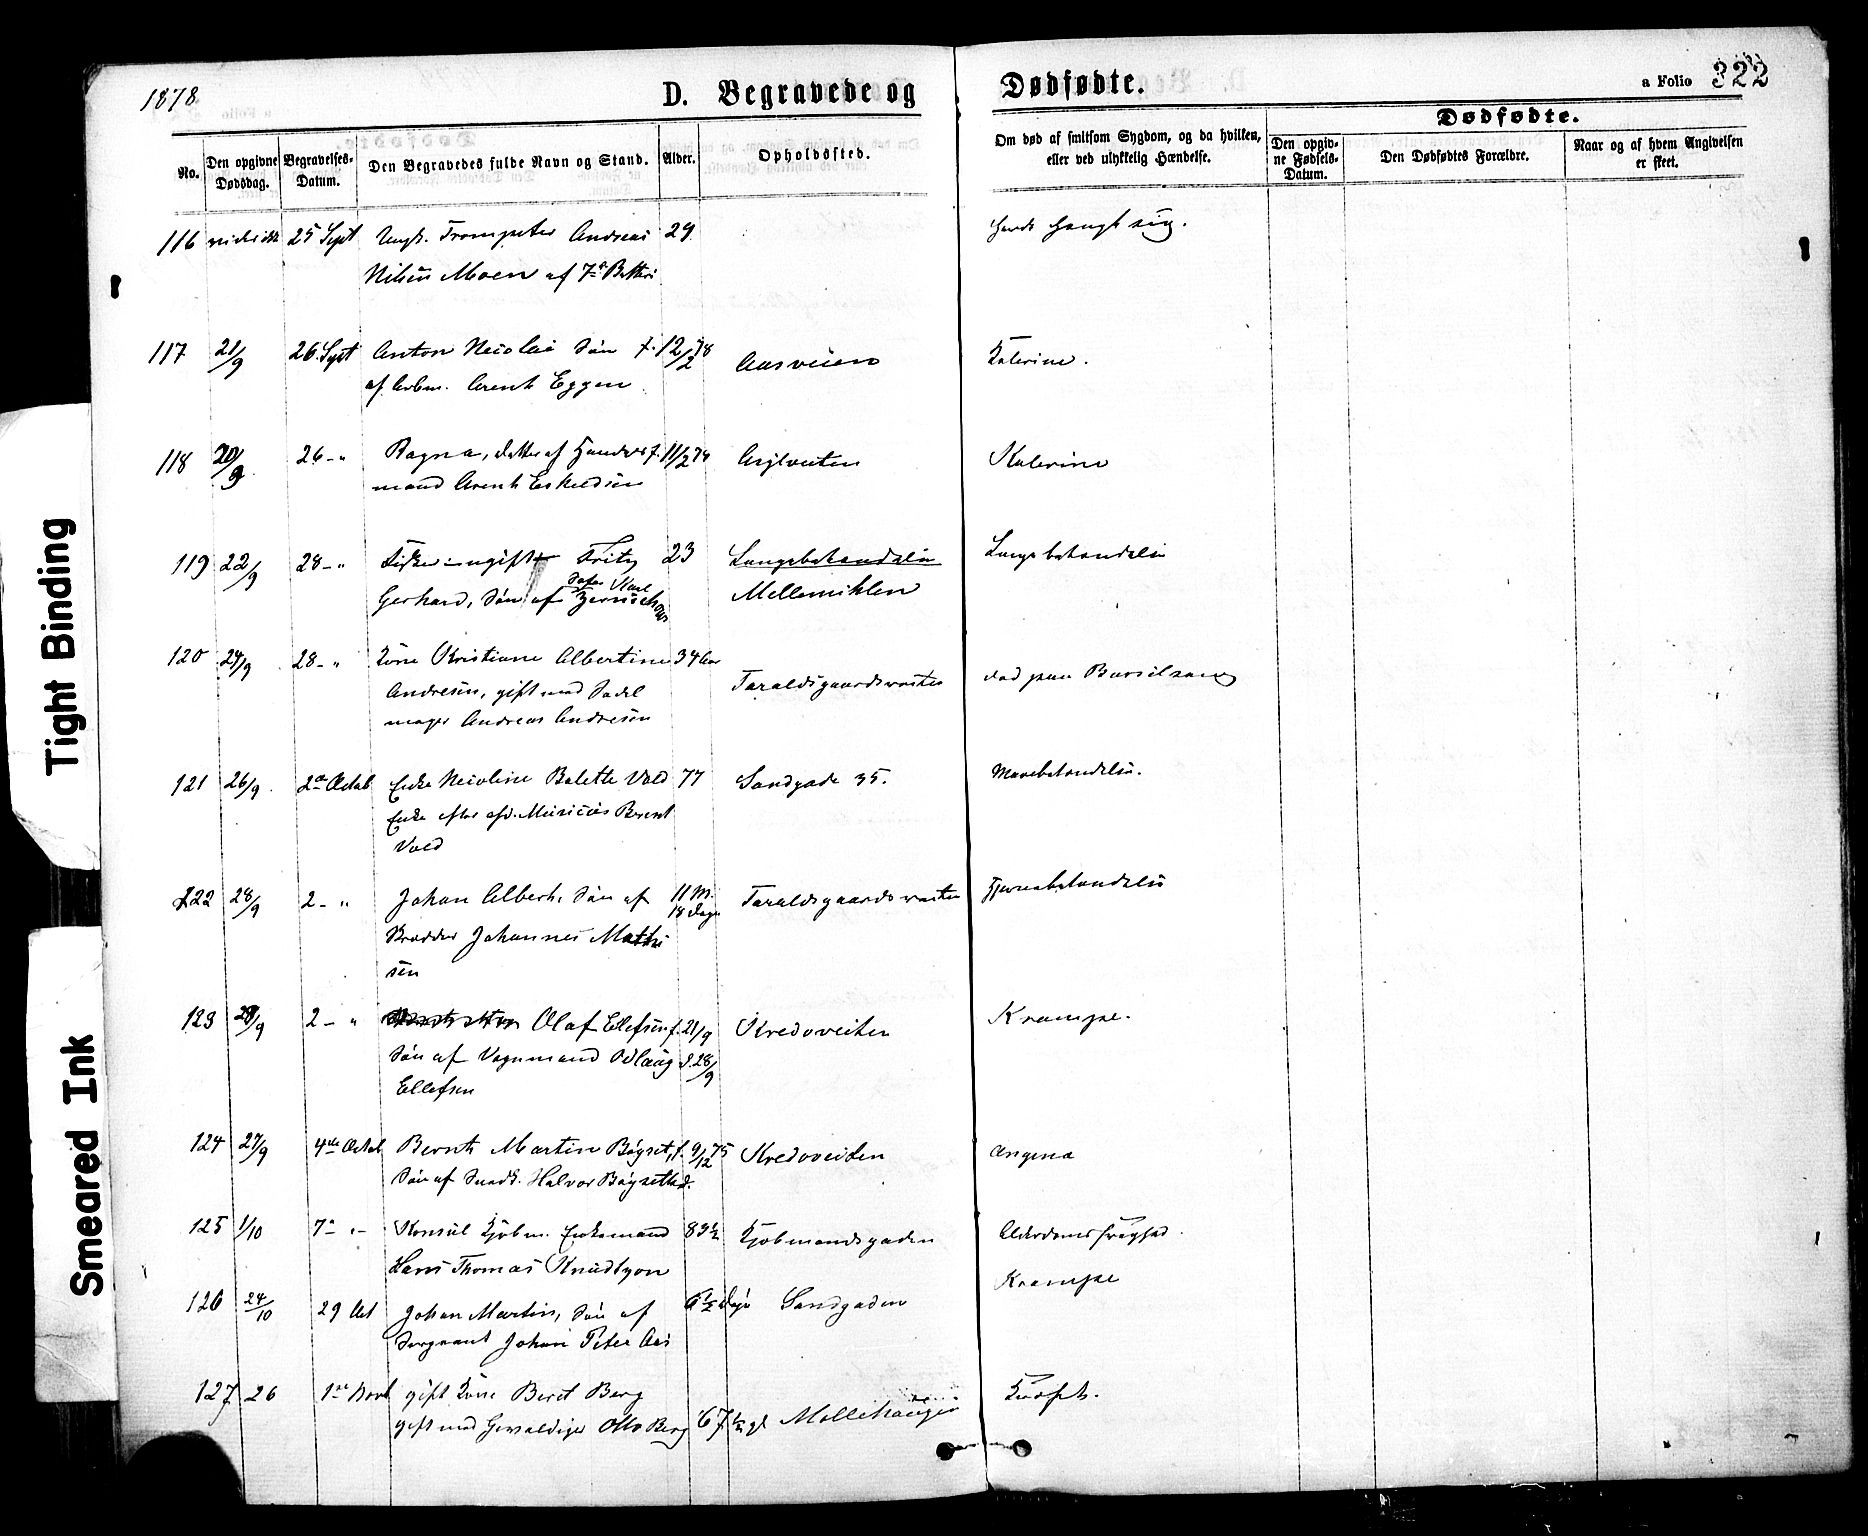 1878.
D. Begravede og
Dødfødte.
a Folio 322
No.
Den opgivne Dødsdag.
Begravelses-Datum.
Den Begravedes fulde Navn og Stand.
Alder.
Opholdssted.
Om død af smitsom Sygdom, og da hvilken, eller ved ulykkelig Hændelse.
Dødfødte.
Den opgivne Fødsels-Datum.
Den Dødfødtes Forældre.
Naar og af hvem Angivelsen er skeet.
116 25 Sept Ungk. Trompeter Andreas 29 havde hængt sig.
Nilsen Moen af 7de Batteri
117 21/9 26 Sept Anton Nicolai Søn f. 12/2 78 Aasveien
af Arbm. Arent Eggen
118 20/9 26 - " Ragna, Datter af f. 11/2 74
mand Arent Eskildsen
119 22/9 28 - " Fisker ungift Fritz 23 Lungebetændelse Lungebetændelse
Gerhard, Søn af Mellemiklen
120 24/9 28 - " Kone Kristiane Albertine 34 Aar
Andresen, gift med Sadel Taraldsgaardsveiten død paa Barselseng
mager Andreas Andresen
121 26/9 2den Octob Enke Nicoline Balette Vold 77 Sandgade 35. Mavebetændelse.
Enke efter afd. Musicus Berent
Vold
122 28/9 2 - " Johan Albert, Søn af 11 M. 18 Dage Taraldsgaardsveiten Hjernebetændelse
Skrædder Johannes Mathi
sen
123 28/9 2 - " Olaf Ellefsen f. 21/9 Kredoveiten Krampe.
Søn af Vognmand Odlaug d. 28/9
Ellefsen
124 27/9 4de Octob Bernt Martin Bøgset, f. 9/12 75 Kredoveiten Angina
Søn af Snedk. Halvor Bøgseth
125 1/10 7 - " - Konsul Kjøbm. Enkemand 83 1/2 Kjøbmandsgaden Alderdomssvaghed.
Hans Thomas Knudtzon
126 24/10 29 Oct Johan Martin, Søn af 6 1/2 Dage Sandgaden Krampe
Sergeant Johan Peter Aas
127 26 1ste Novb gift Kone Beret Berg
gift med Gevaldiger Otto Berg 67 Møllehaugen
Tight Binding
Smeared Ink